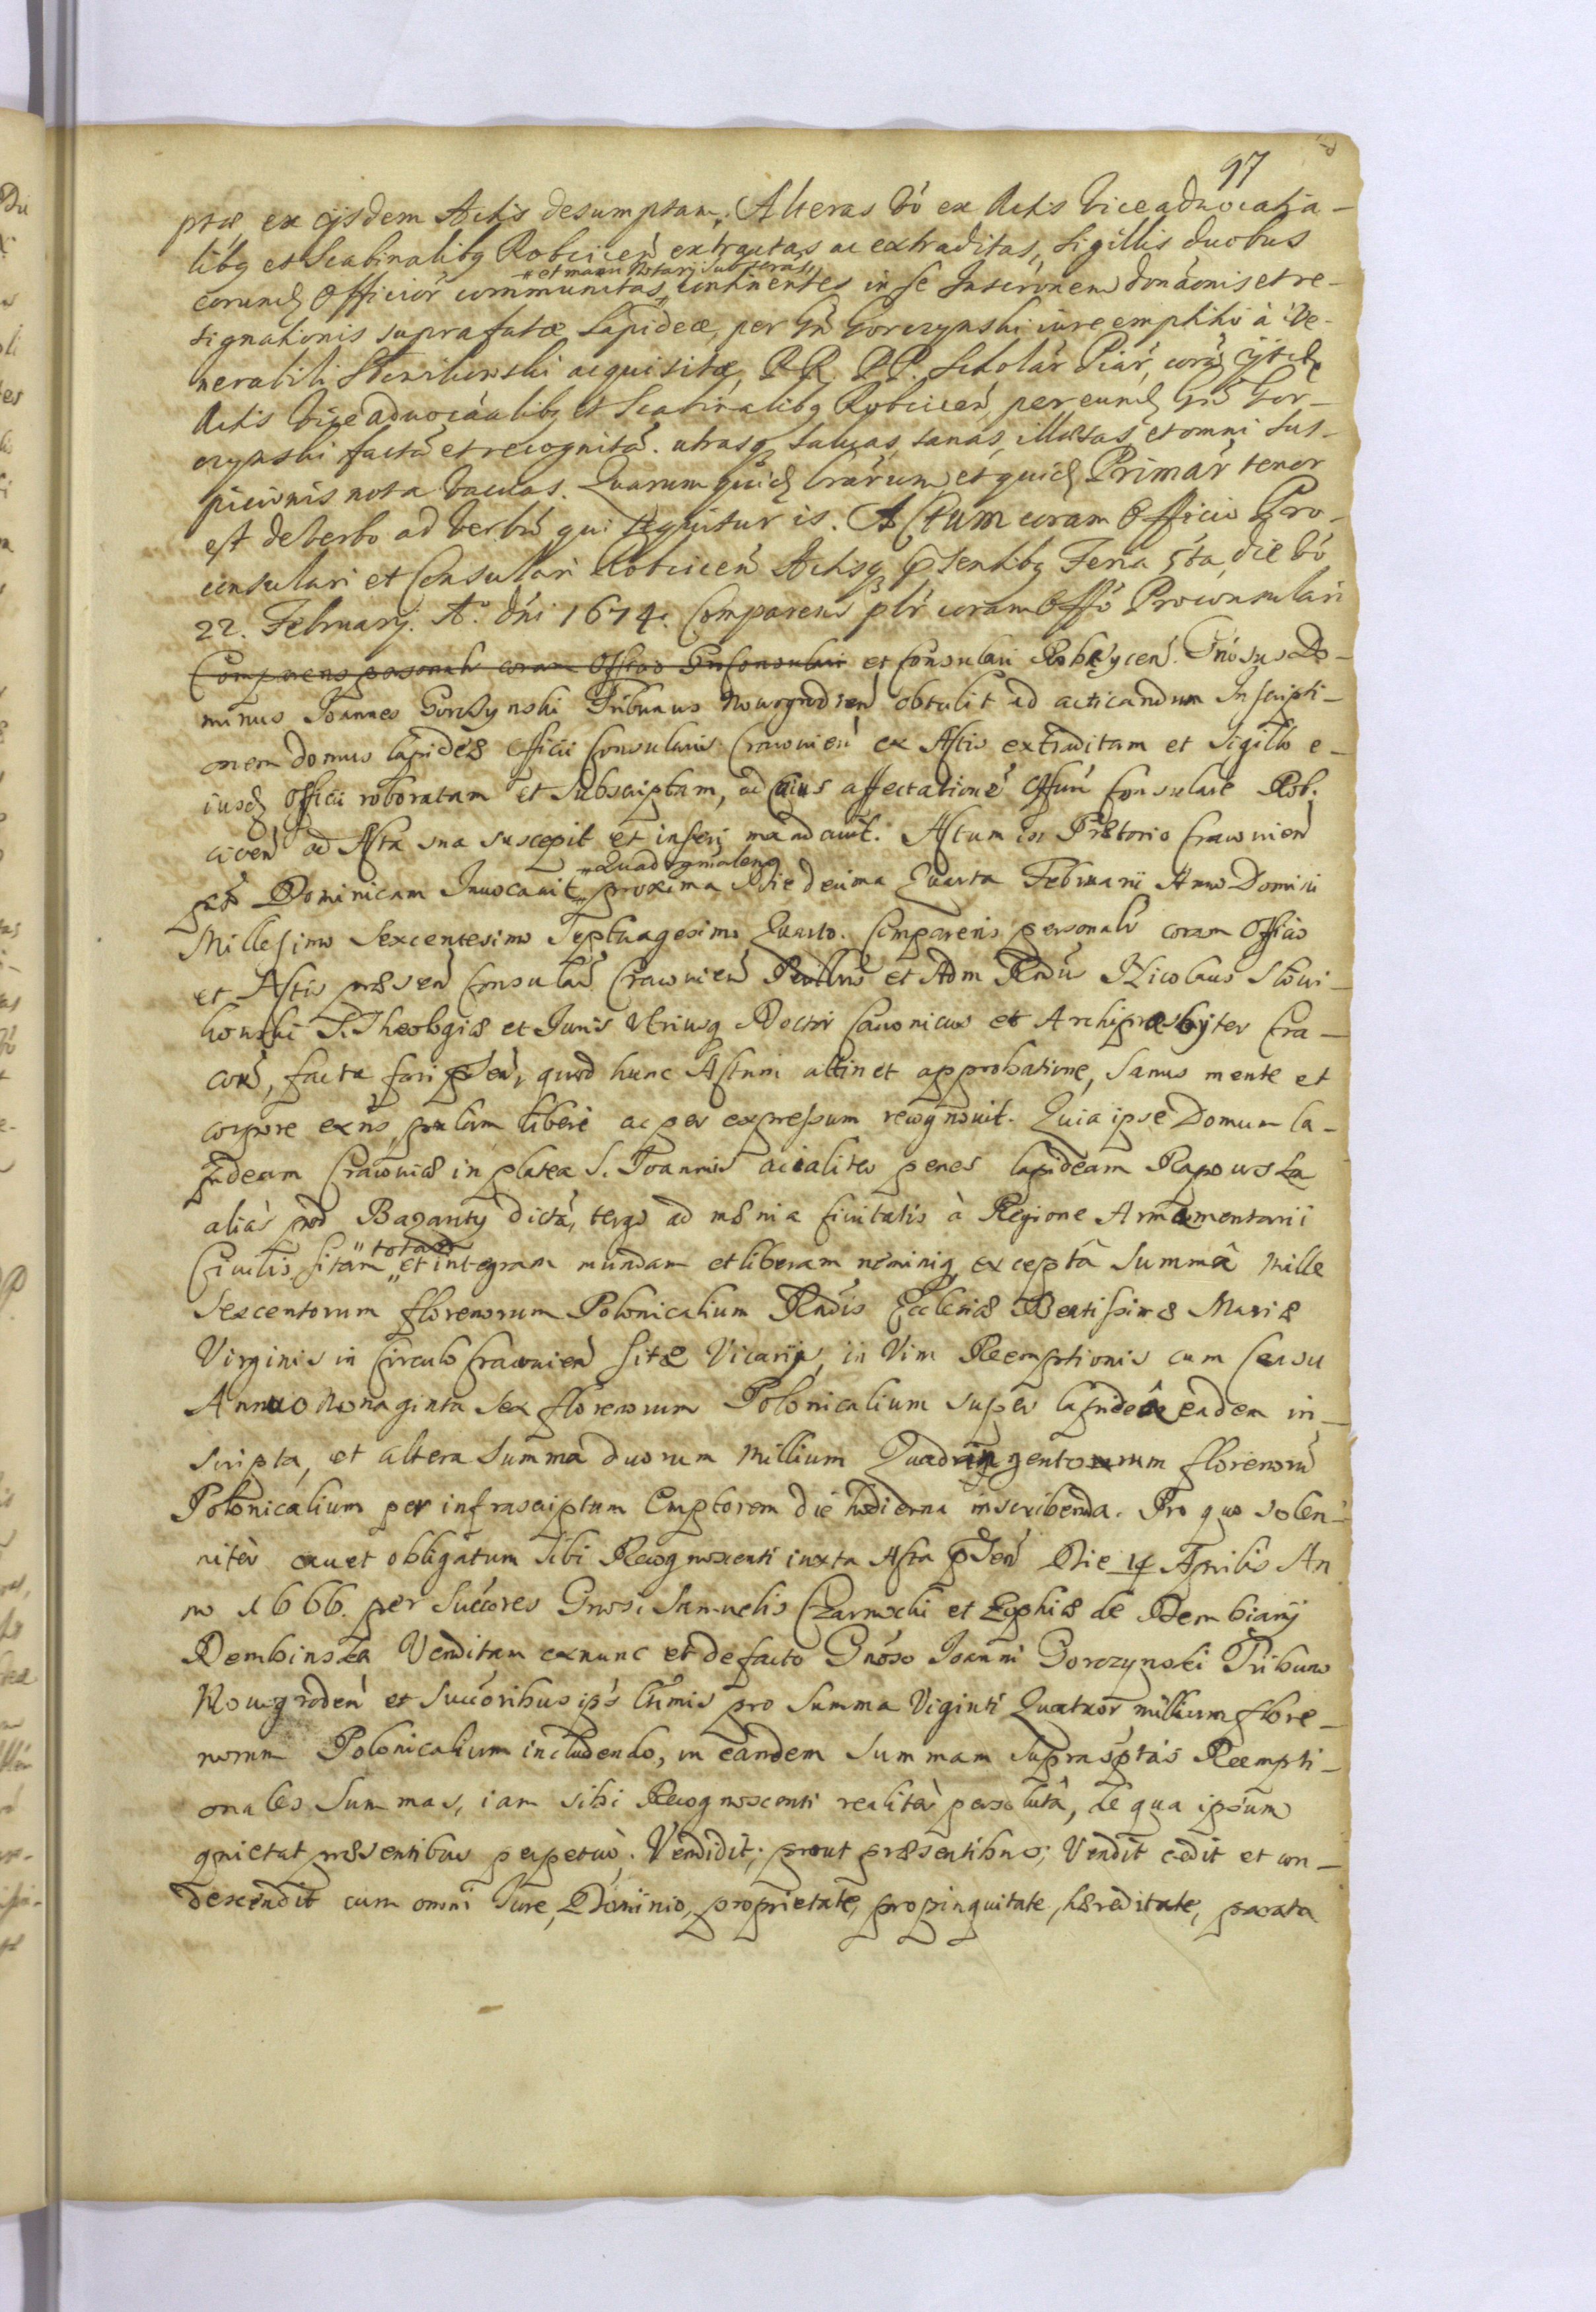 97
ptæ, ex ijsdem Actis desumptam. Alteras vó ex Actis Viceaduocatia-
libq et Scabinalibq Robcicen̄ extractas ac extraditas, sigillis duobus
"et manu Notarij subscras,,
eorund Officior̄ communitas,, continentes in se Inscrónem donáonis et re-
signationis suprafatæ Lapideæ, per Gn̄ Gorczynski iure emptitió à Ve-
nerabili acquisitæ, RR. PP. Scholar̄ Piar̄, corā ijsd
Actis Viceaduocáalibq et Scabinalibq Robcicen̄ per eund Gn̄ Gor-
czynski factā et recognitā. utrasq saluas, sanas, illæsas, et omni sus-
picionis nota vacuas. Quarum quid lrārum et quid Primar̄ tenor
est de verbo ad verbū qui sequitur is. Actum coram Officio Pro-
consulari et Consulari Robcicen̄ Actisq pr̄sentibq Feria 5ta, die vó
22. February. A.º dni 1674. Comparens plr̄ coram Offó Proconsulari
Comparens personalr̄ coram Officio Proconsulari et Consulari Robczycen̄. Gnōsus Do-
minus Joannes Gorczynski Tribunus Nowogrodien̄ obtulit ad acticandum Inscripti-
onem domus lapideæ Officii Consularis Cracouien̄ ex Actis extraditam et sigillo e-
iusd Officii roboratam et subscriptam, ad cuius affectationē Offūm Consulare Rob-
cicen̄ ad Acta sua suscepit et inseri mandauit. Actum in Prætorio Cracouien̄
"Quadragmalem
post Dominicam Inuocauit,, proxima die decima Quarta Februarii Anno Domini
Millesimo Sexcentesimo Septuagesimo Quarto. Comparens personalr̄ coram Officio
et Actis præsen̄ Consular̄ Cracouien̄ Perillris et Adm Rndus Nicolaus Słowi-
kowski S. Theologiæ et Juris Utriusq Doctor Canonicus et Archipresbyter Cra-
cov̄, facta fori pr̄sen̄, quod hunc Actum attinet approbatione, sanus mente et
corpore exn̄s, palam libere ac per expressum recognouit. Quia ipse Domum la-
pideam Cracouiæ in platea S. Joannis acialiter penes lapideam Rapowska
aliàs pod Bazanty dictā, tergo ad mænia Ciuitatis à Regione Armamentarii
"totam
Ciuilis sitam,, et integram mundam et liberam neminiq exceptâ Summâ Mille
Sexcentorum florenorum Polonicalium Rndis Ecclesiæ Beatissimæ Mariæ
Virginis in Circulo Cracouien̄ sitæ Vicarijs, in Vim Reemptionis cum Censu
Annuo Nonaginta sex florenorum Polonicalium super lapideâ eâdem in-
scripta, et altera Summa duorum Millium Quadringentorum florenorū
Polonicalium per infrascriptum Emptorem die hodierna inscribenda. Pro quo solen-
niter cauet obligatum sibi Recognoscenti iuxta Acta pr̄sen̄ Die 14 Aprilis An
no 1666. per Succ̄ores Gnosi Samuelis Czarnocki et Zophiæ de Dembiany
Dembinska Venditam exnunc et defacto Gnōso Joanni Gorczynski Tribuno
Nowogroden̄ et Succ̄oribus ips̄ ltimis pro Summa Viginti Quatuor millium flore-
norum Polonicalium includendo, in eandem Summam suprascptas Reempti-
onales Summas, iam sibi Recognoscenti realiter persolutâ, de qua ipsum
quietat præsentibus perpetuò. Vendidit; prout præsentibus; Vendit cedit et con-
descendit cum omni Iure, Dominio, proprietate, propinquitate, hæreditate, parata